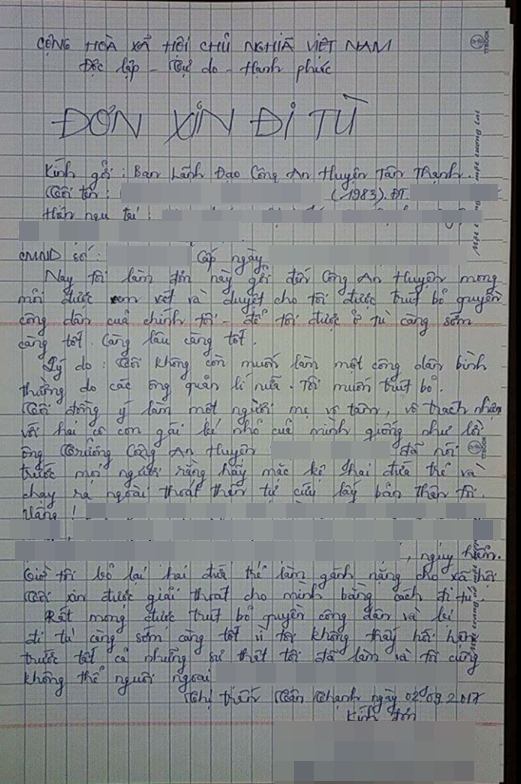 CỘNG HOÀ XÃ HỘI CHỦ NGHĨA VIỆT NAM
Độc lập - Tự do - Hạnh phúc
ĐƠN XIN ĐI TÙ
Kính gởi : Ban Lãnh Đạo Công An Huyện Tân Thạnh.
Tôi tên : (1983). ĐT.
Hiện ngụ tại :
CMND số : Cấp ngày
Nay tôi làm đơn này gởi đến Công An Huyện mong
mỏi được xem xét và duyệt cho tôi được trút bỏ quyền
công dân của chính tôi - để tôi được ở tù càng sớm
càng tốt. Càng lâu càng tốt.
Lý do : Tôi không còn muốn làm một công dân bình
thường do các ông quản lí nữa. Tôi muốn trút bỏ.
Tôi đồng ý làm một người mẹ vô tâm, vô trách nhiệm
với hai cô con gái bé nhỏ của mình giống như lời
ông Trưởng Công An Huyện đã nói
trước mọi người rằng hãy mặc kệ hai đứa trẻ và
chạy ra ngoài thoát thân tự cứu lấy bản thân tôi.
Vâng !
, nguy hiểm.
Giờ tôi bỏ lại hai đứa trẻ làm gánh nặng cho xã hội
Tôi xin được giải thoát cho mình bằng cách đi tù.
Rất mong được trút bỏ quyền công dân và
đi tù càng sớm càng tốt vì tôi không thấy hối hận
trước tất cả những sự thật tôi đã làm và tôi cũng
không thể người ngoài
Thị trấn Tân Thạnh ngày 02.09.2017
Kính đơn